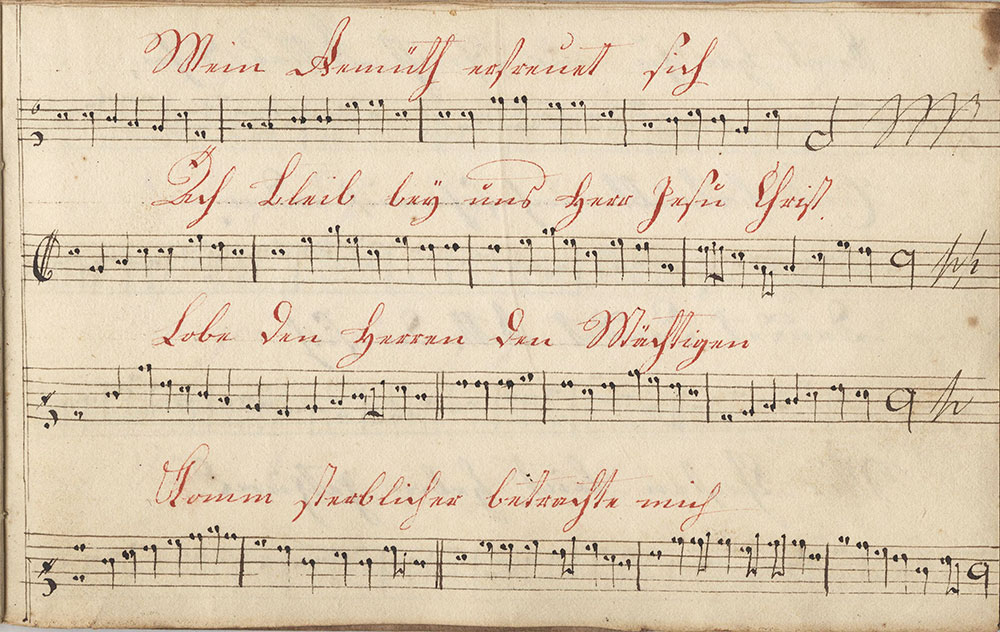 Mein Gemüth erfreuet sich
Ach bleib bey uns Herr Jesu Christ.
Lobe den Herren den Mächtigen
Komm sterblicher betrachte mich